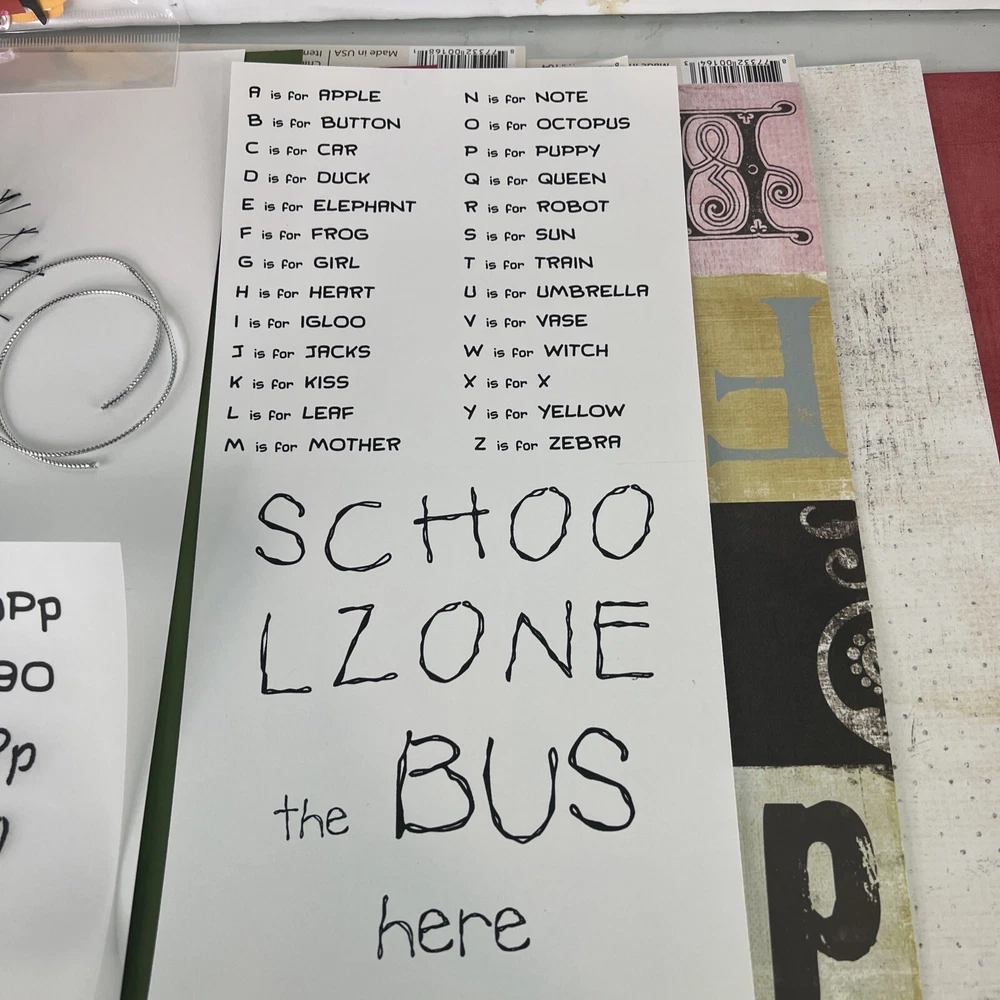 Made in USA
8 77332 00168 1
8 77332 00164 3
A is for APPLE
B is for BUTTON
C is for CAR
D is for DUCK
E is for ELEPHANT
F is for FROG
G is for GIRL
H is for HEART
I is for IGLOO
J is for JACKS
K is for KISS
L is for LEAF
M is for MOTHER
N is for NOTE
O is for OCTOPUS
P is for PUPPY
Q is for QUEEN
R is for ROBOT
S is for SUN
T is for TRAIN
U is for UMBRELLA
V is for VASE
W is for WITCH
X is for X
Y is for YELLOW
Z is for ZEBRA
SCHOO
LZONE
the BUS
here
Pp
90
Pp
F
p